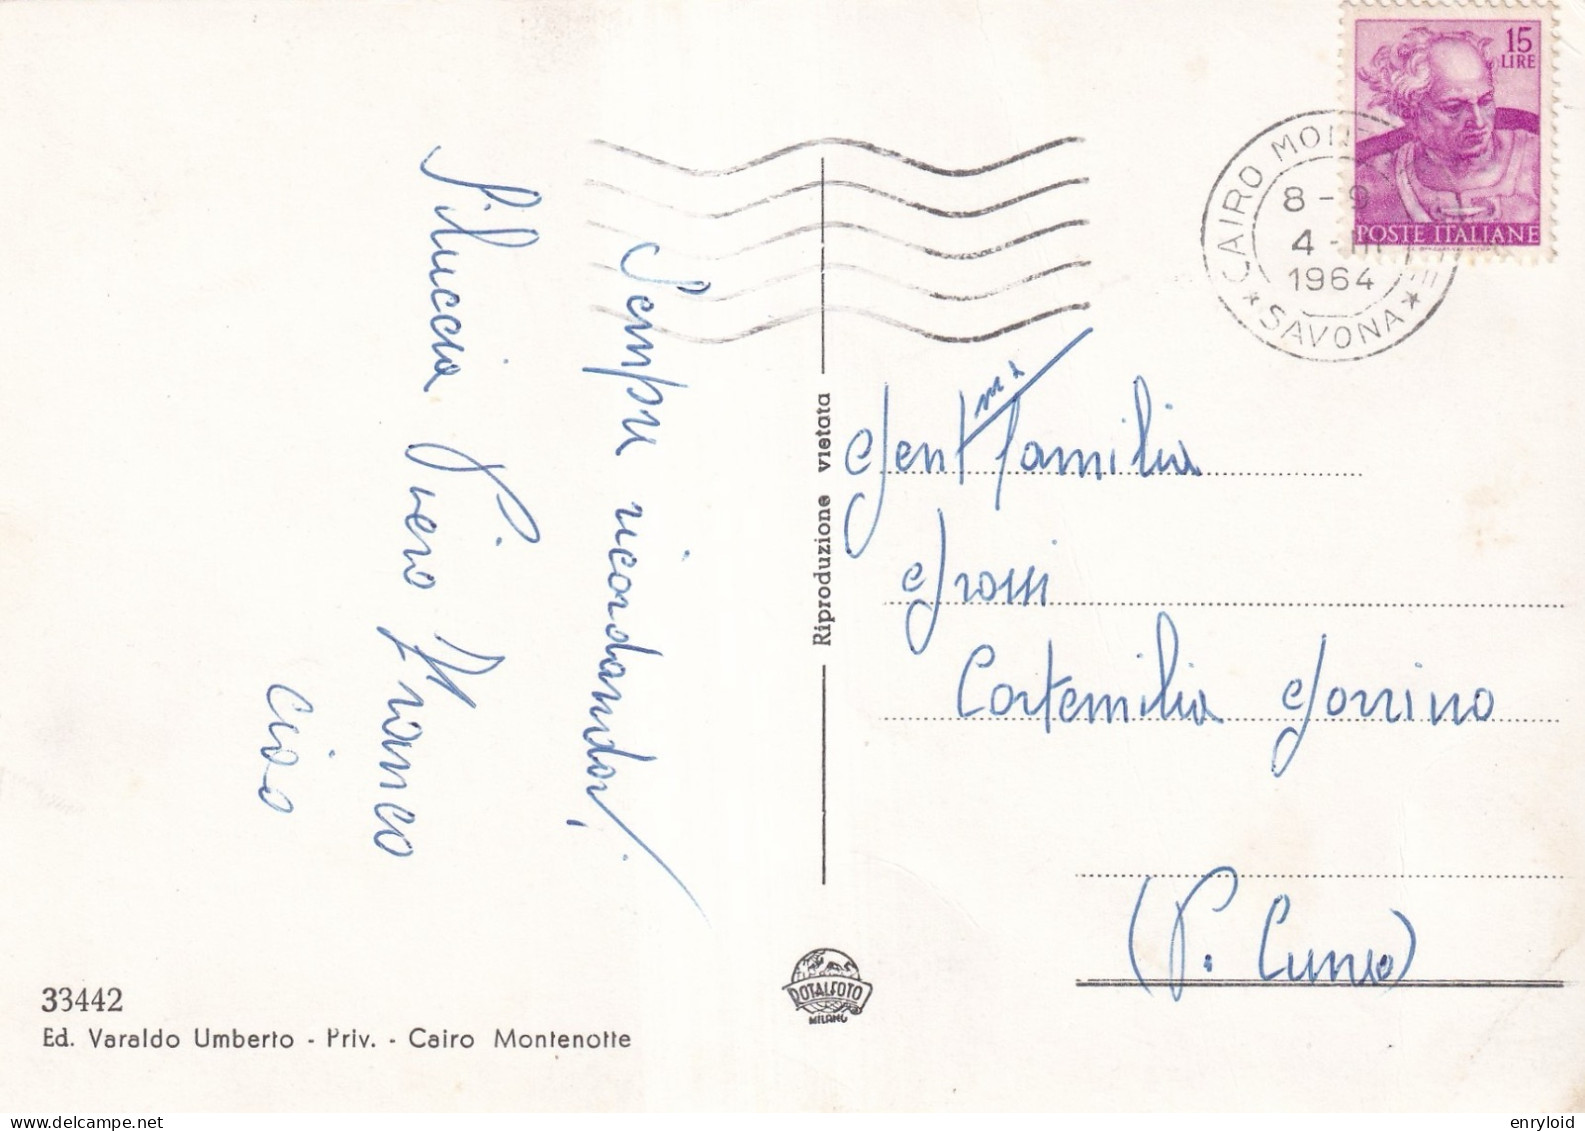 15
LIRE
POSTE ITALIANE
CAIRO MON
8 - 9
4 - III
1964
* SAVONA *
Sempre ricordandovi,
Piero Franco
ciao
Riproduzione vietata
Gent ma famiglia
Grossi
Cortemilia Gorrino
(P. Cuneo)
ROTALFOTO
MILANO
33442
Ed. Varaldo Umberto - Priv. - Cairo Montenotte
enryloid